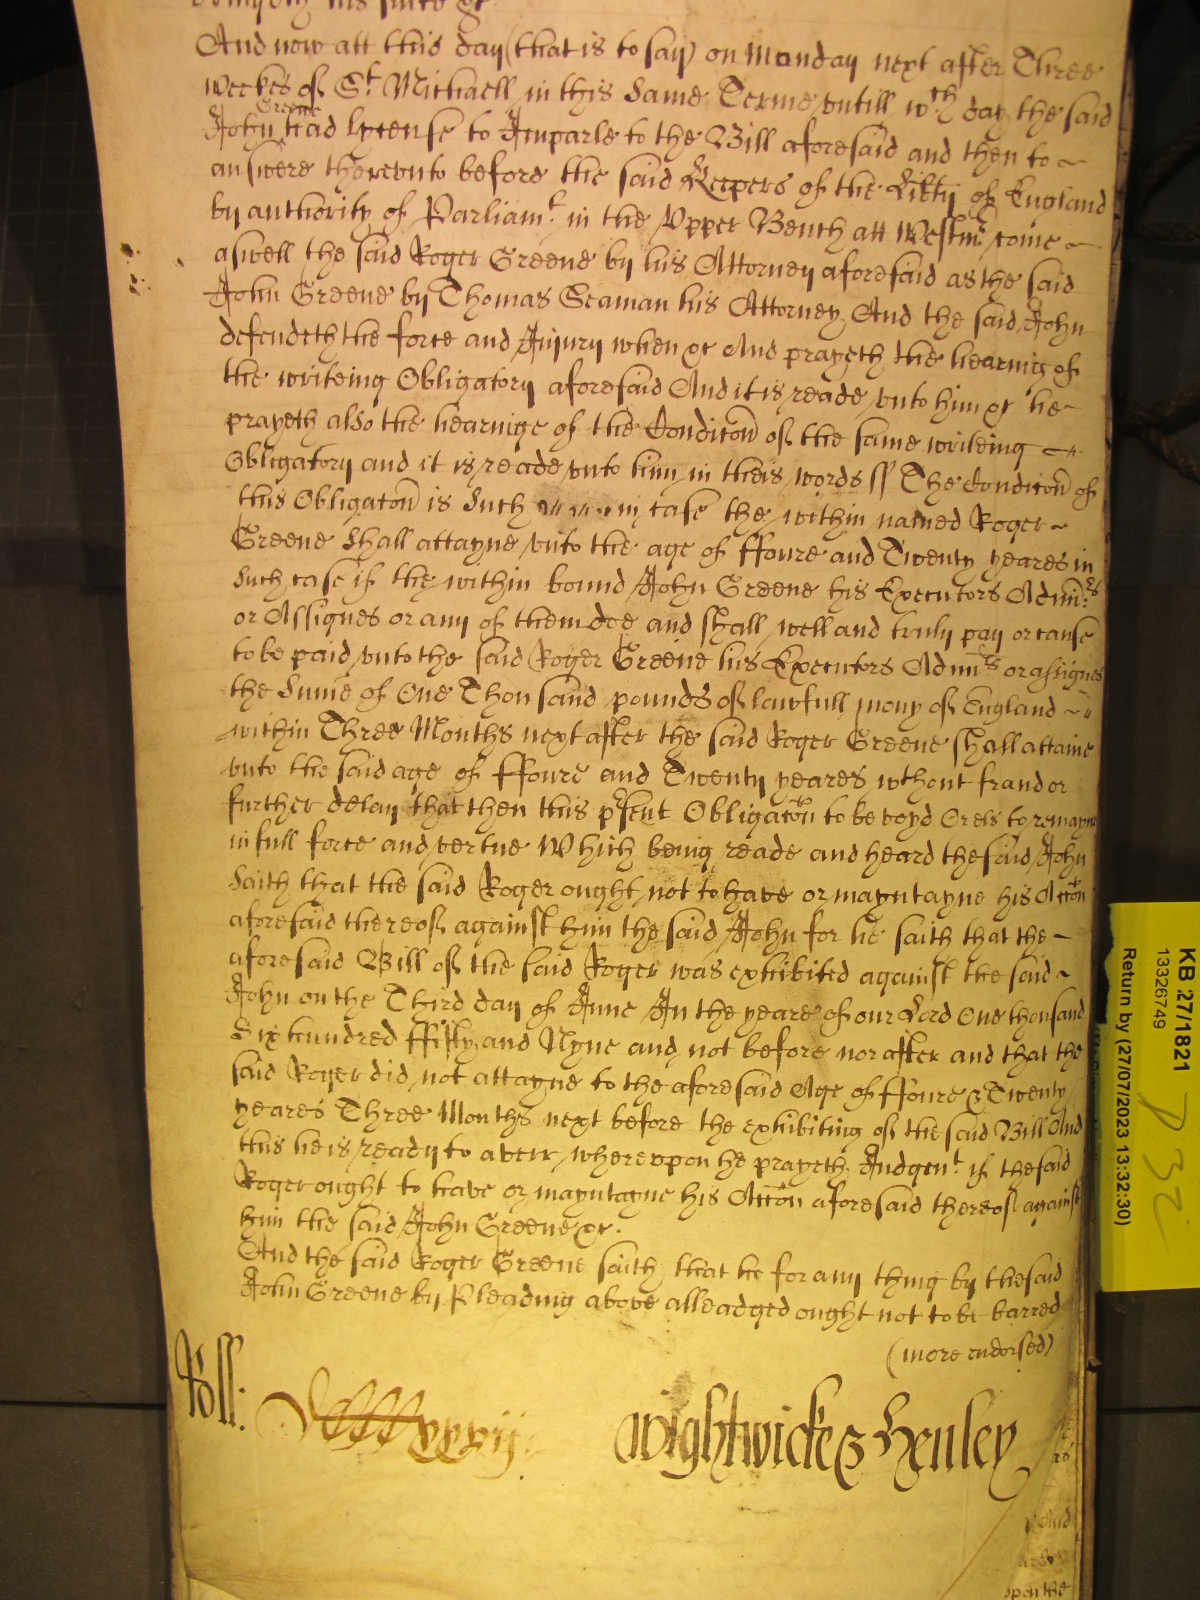 his suite &c
And now att this day (that is to say) on Monday next after Three
weekes of St Michaell in this same Terme untill wch day the said
John Greene had lycense to Imparle to the Bill aforesaid and then to
answere thereunto before the said Keepers of the Libty of England
by authority of Parliamt in the Upper Bench att Westmr come
aswell the said Roger Greene by his Attorney aforesaid as the said
John Greene by Thomas Seaman his Attorney And the said John
defendeth the force and Injury when &c And prayeth the hearing of
the writeing Obligatory aforesaid And it is reade unto him &c he
prayeth also the hearinge of the Condicon of the same writeing
Obligatory and it is reade unto him in theis words ss The Condicon of
this Obligacon is such in case the within named Roger
Greene shall attayne unto the age of ffoure and Twenty yeares in
such case if the within bound John Greene his Executors Admrs
or Assignes or any of them doe and shall well and truly pay or cause
to be paid unto the said Roger Greene his Executors Admrs or assignes
the sume of One Thousand pounds of lawfull mony of England
within Three Months next after the said Roger Greene shall attaine
unto the said age of ffoure and Twenty yeares wthout fraud or
further delay that then this psent Obligacon to be voyd Or els to remayne
in full force and vertue Which being reade and heard the said John
saith that the said Roger ought not to have or mayntayne his Accon
aforesaid thereof against him the said John for he saith that the
aforesaid Bill of the said Roger was exhibited against the said
John on the Third day of June In the yeare of our Lord One thousand
Six hundred ffifty and Nyne and not before nor after and that the
said Roger did not attayne to the aforesaid Age of ffoure & Twenty
yeares Three Months next before the exhibiting of the said Bill And
this he is ready to averr whereupon he prayeth Judgent if the said
Roger ought to have or mayntayne his Accon aforesaid thereof against
him the said John Greene &c.
And the said Roger Greene saith that he for any thing by the said
John Greene by Pleading above alleadged ought not to be barred
(more endorsed)
Roll:
Wightwicke & Henley
KB 27/1821
13326749
Return by (27/07/2023 13:32:30)